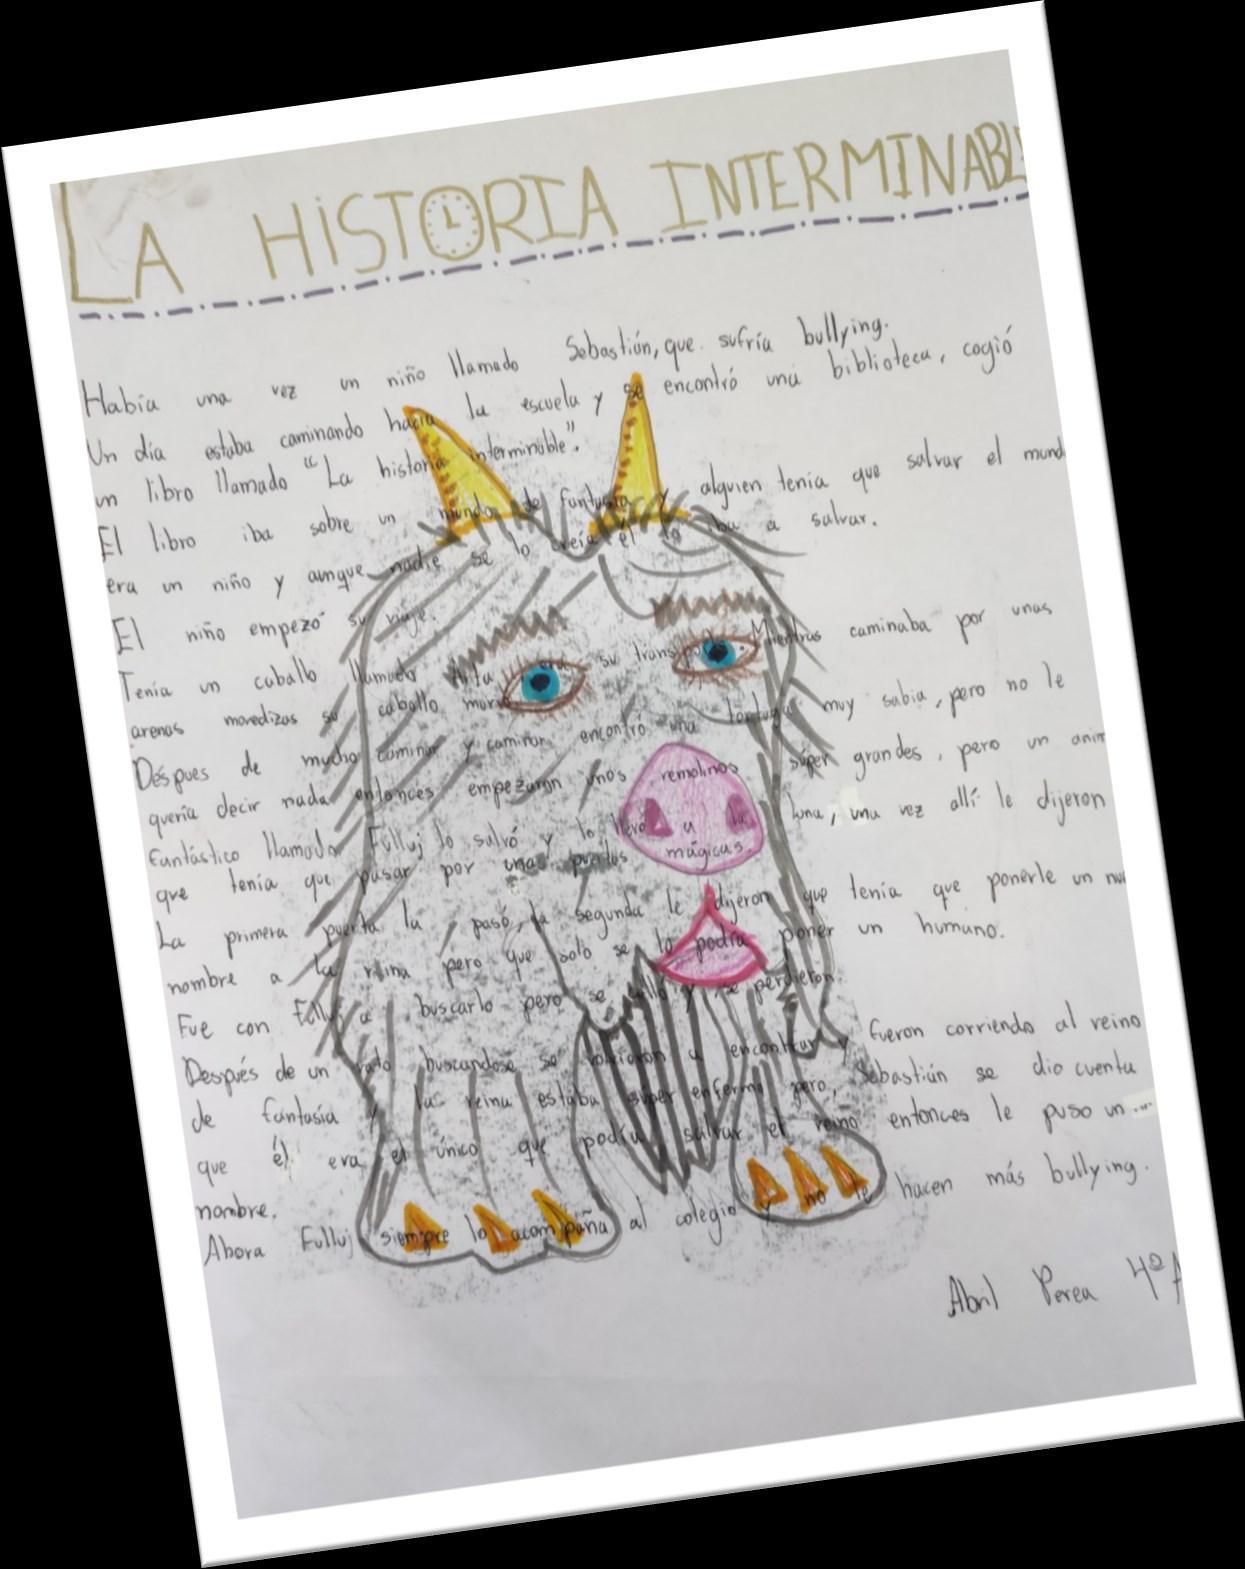 LA HISTORIA INTERMINABLE
Había una vez un niño llamado Sebastián, que sufría bullying.
Un día estaba caminando hacia la escuela y se encontró una biblioteca, cogió
un libro llamado "La historia interminable".
El libro iba sobre un mundo de fantasía y alguien tenía que salvar el mund
era un niño y aunque nadie se lo creía él lo iba a salvar.
El niño empezó su viaje.
Tenía un caballo llamado era su Mientras caminaba por unas
arenas movedizas su caballo
Déspues de mucho caminar y caminar encontró una tortuga muy sabia, pero no le
quería decir nada entonces empezaron unos remolinos súper grandes, pero un anim
fantástico llamado Fulluj lo salvó y lo llevó a la luna, una vez allí le dijeron
que tenía que pasar por unas puertas mágicas.
La primera puerta la pasó, la segunda le dijeron que tenía que ponerle un nu
nombre a la reina pero que solo se lo podía poner un humano.
Fue con Fulluj a buscarlo pero se y se perdieron.
Después de un rato buscandose se volvieron a encontrar y fueron corriendo al reino
de fantasía y la reina estaba súper enferma pero, Sebastián se dio cuenta
que él era el único que podía salvar el reino entonces le puso un ...
nombre.
Ahora Fulluj siempre lo acompaña al colegio y no le hacen más bullying.
Abril Perea 4º A